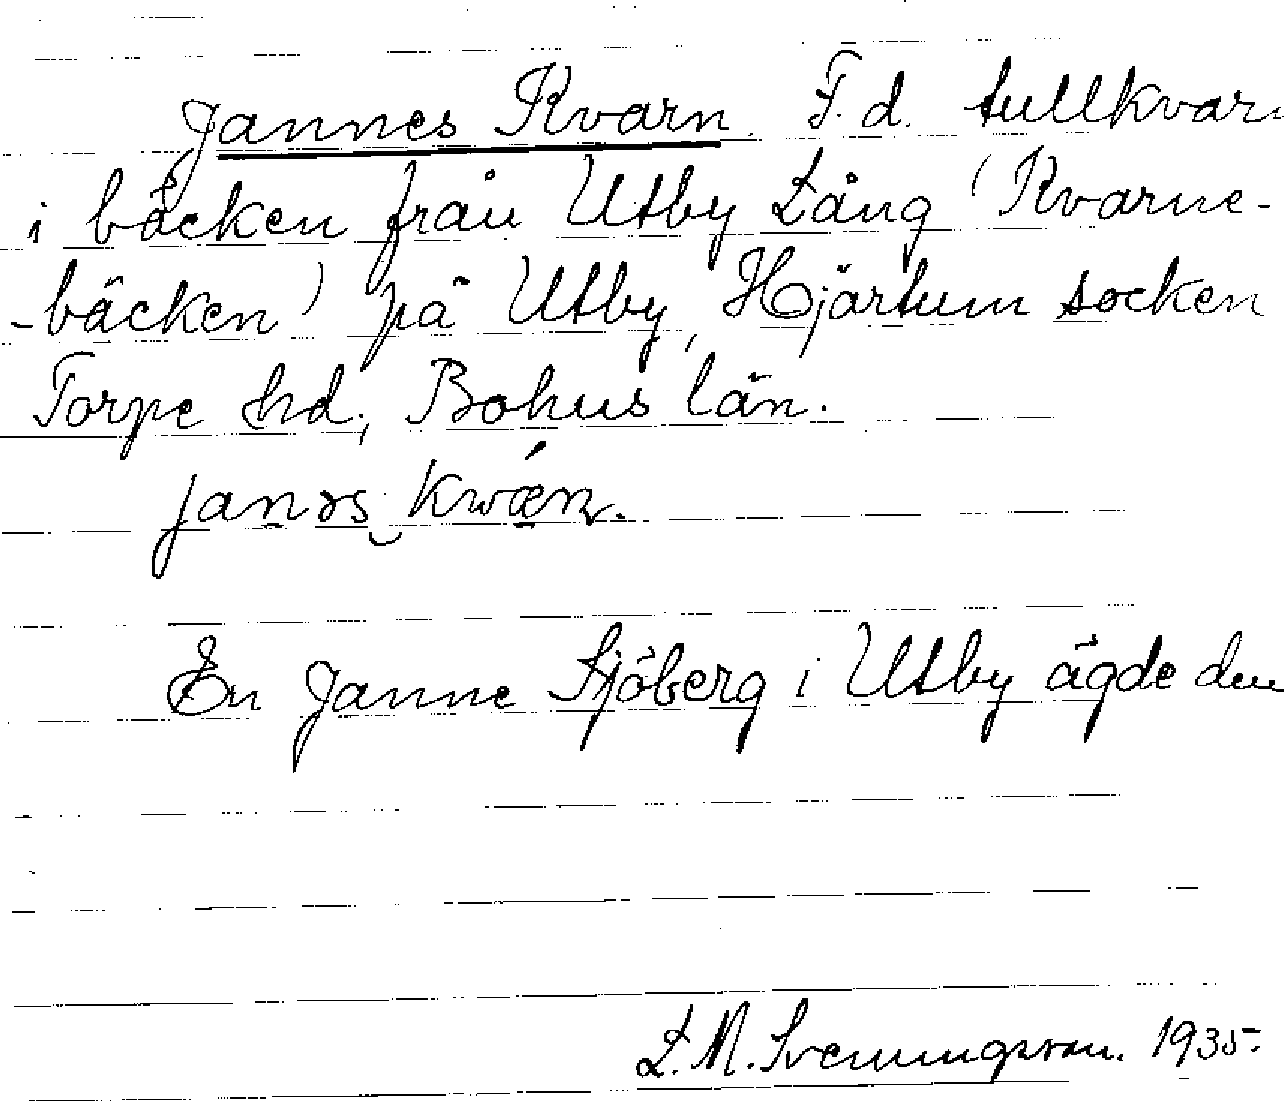 Jannes Kvarn. F. d. tullkvarn
i bäcken från Utby Lång (Kvarne-
-bäcken) på Utby, Hjärtum socken
Torpe hd, Bohus län.
janɤs kwǽn.
En Janne Sjöberg i Utby ägde den
L. M. Svenungsson. 1935.